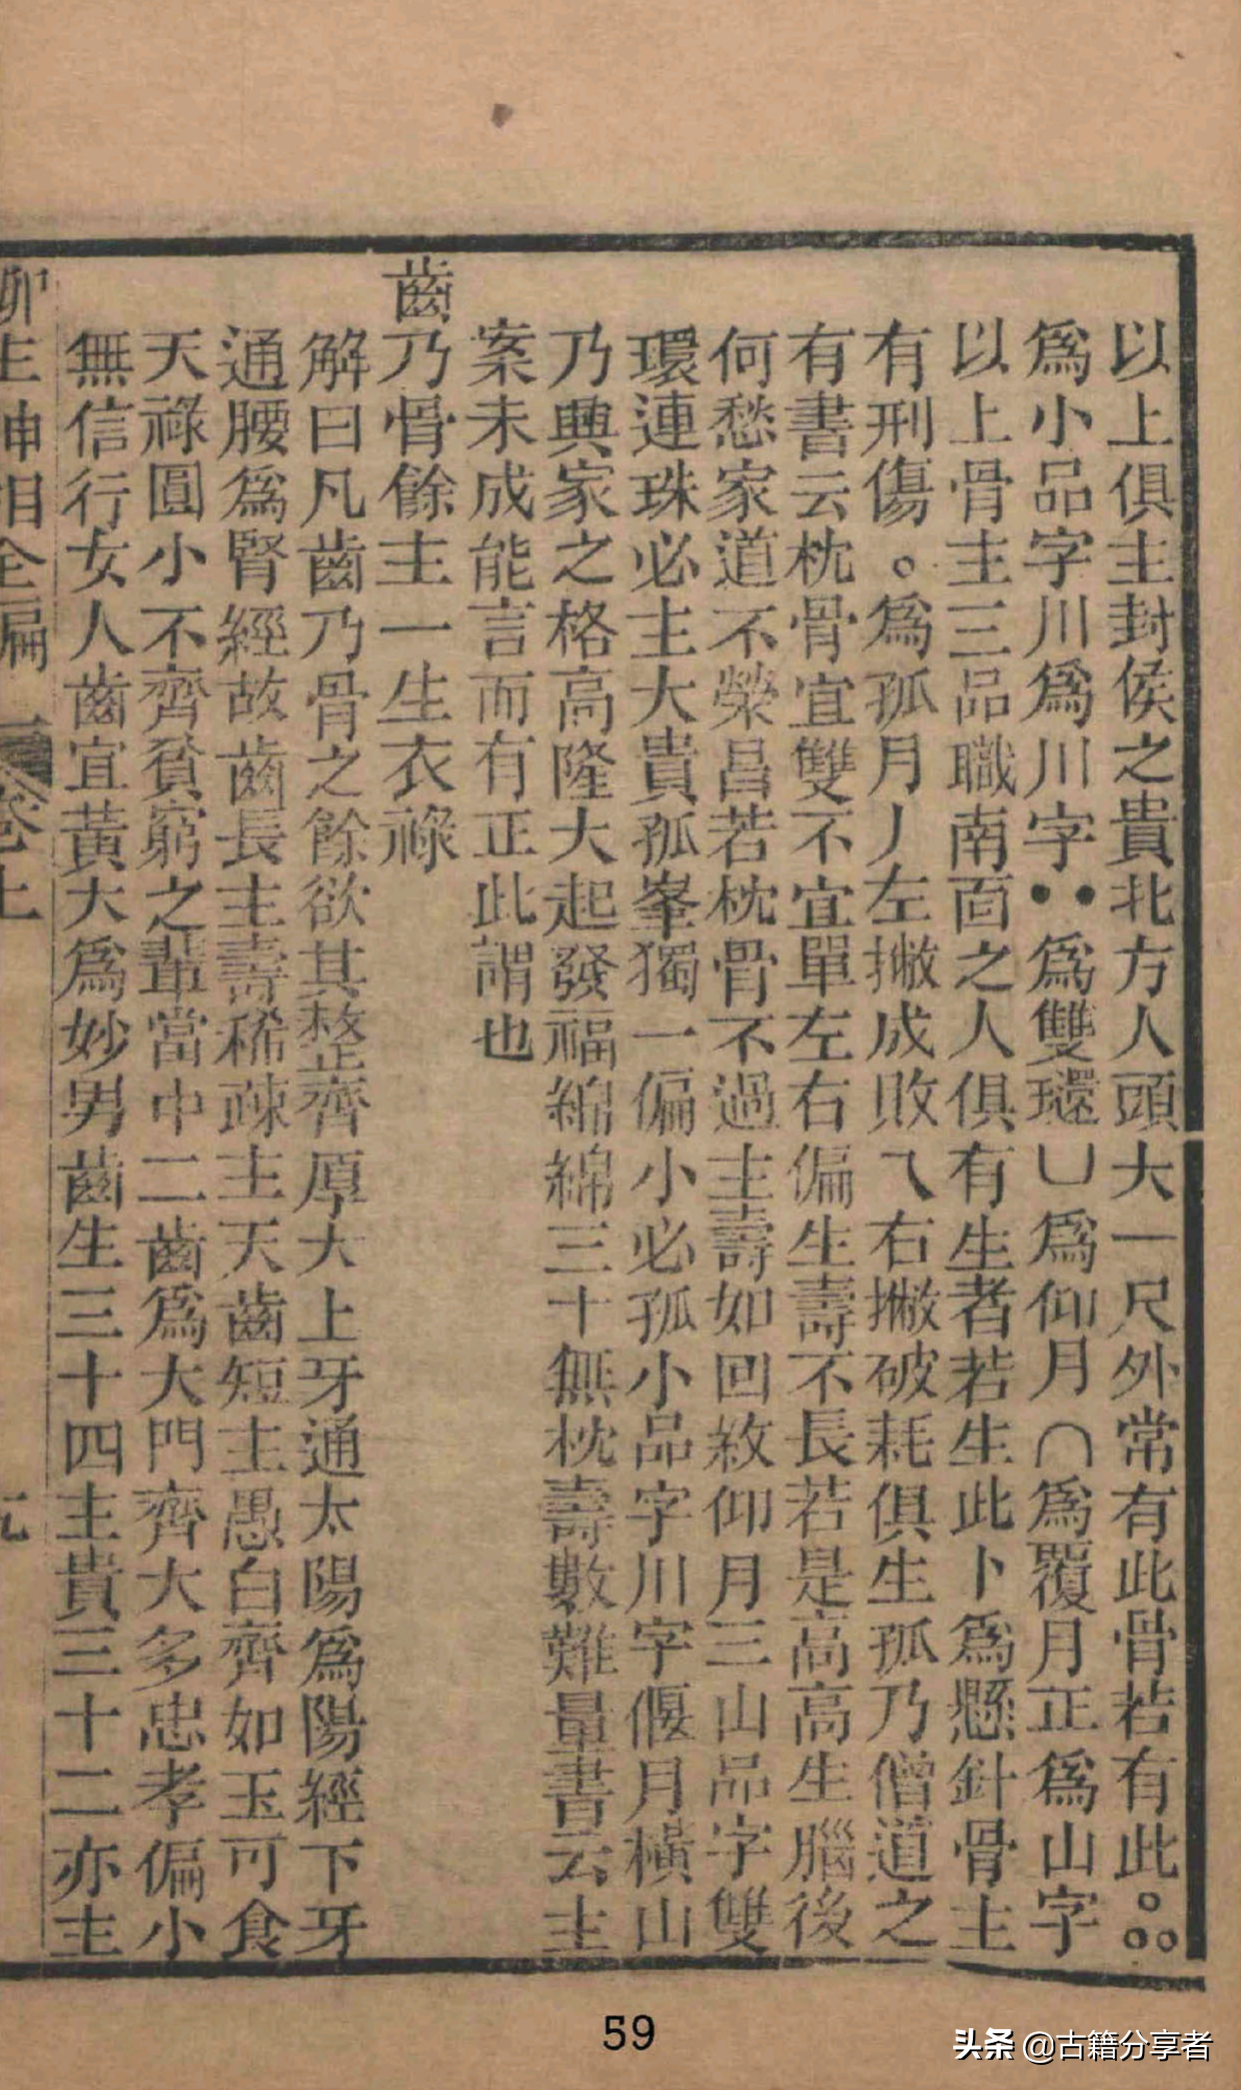 以上俱主封侯之貴北方人頭大一尺外常有此骨若有此
爲小品字川爲川字••爲雙環凵爲仰月∩爲覆月正爲山字
以上骨主三品職南面之人俱有生者若生此卜爲懸針骨主
有刑傷。爲孤月丿左撇成敗乀右撇破耗俱生孤乃僧道之
有書云枕骨宜雙不宜單左右偏生壽不長若是高高生腦後
何愁家道不榮昌若枕骨不過主壽如回紋仰月三山品字雙
環連珠必主大貴孤峯獨一偏小必孤小品字川字偃月橫山
乃興家之格高隆大起發福綿綿三十無枕壽數難量書云主
案未成能言而有正此謂也
齒乃骨餘主一生衣祿
解曰凡齒乃骨之餘欲其整齊厚大上牙通太陽爲陽經下牙
通腰爲腎經故齒長主壽稀疎主夭齒短主愚白齊如玉可食
天祿圓小不齊貧窮之輩當中二齒爲大門齊大多忠孝偏小
無信行女人齒宜黃大爲妙男齒生三十四主貴三十二亦主
神相全編 卷上
59
头条 @古籍分享者